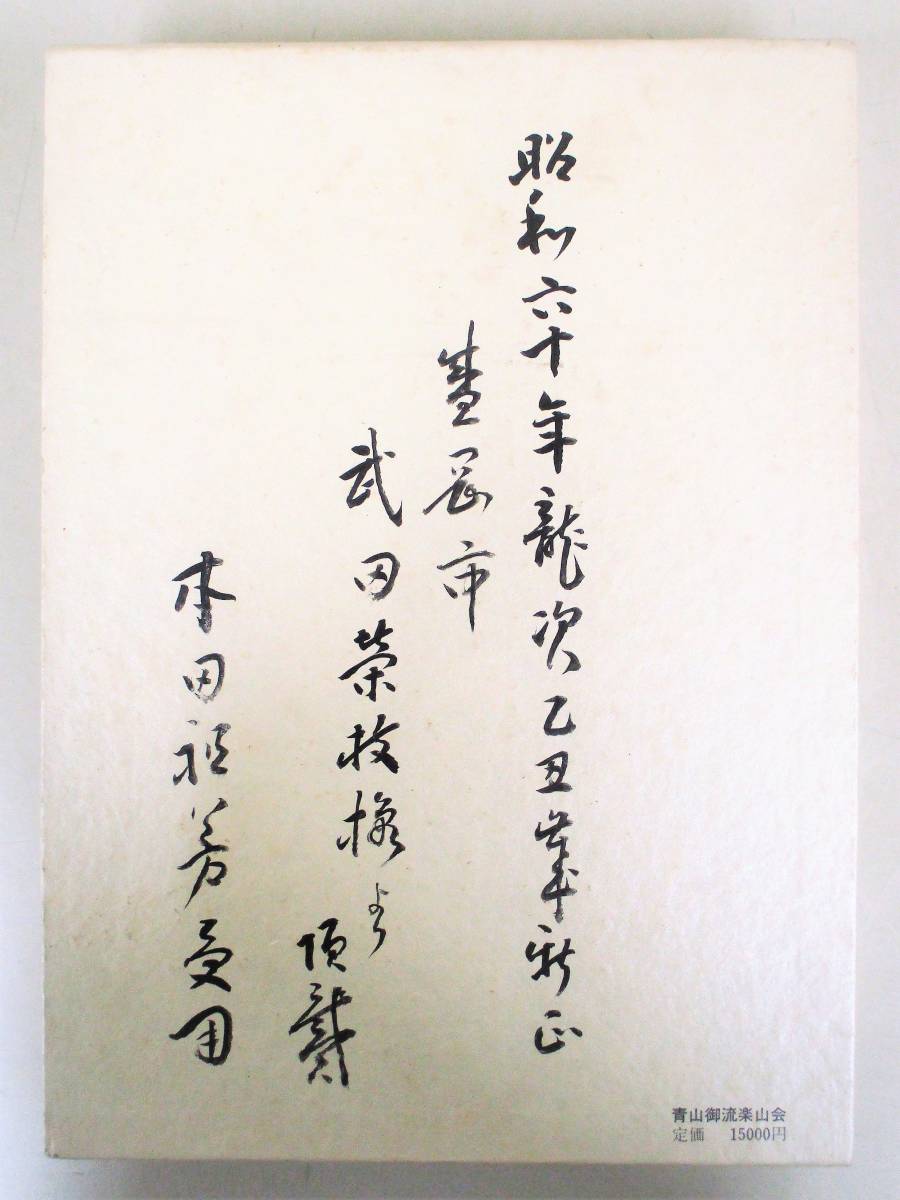 昭和六十年龍次乙丑歳新正
盛岡市
武田榮枝様より
頂戴
本田祖芳受用
青山御流楽山会
定価 15000円